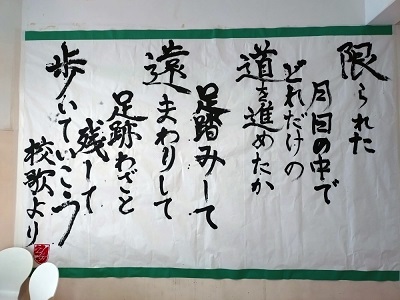 限られた
月日の中で
どれだけの
道を進めたか
足踏みして
遠まわりして
足跡わざと
残して
歩いていこう
校歌より